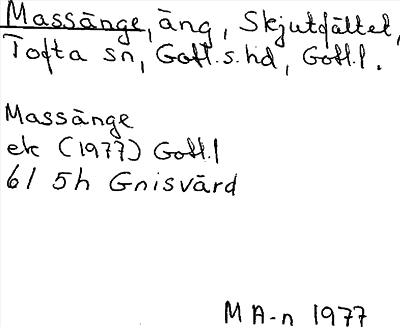 Massänge, äng, Skjutfältet,
Tofta sn, Gotl.s.hd, Gotl.l.
Massänge
ek (1977) Gotl.l
6I 5h Gnisvärd
M A-n 1977